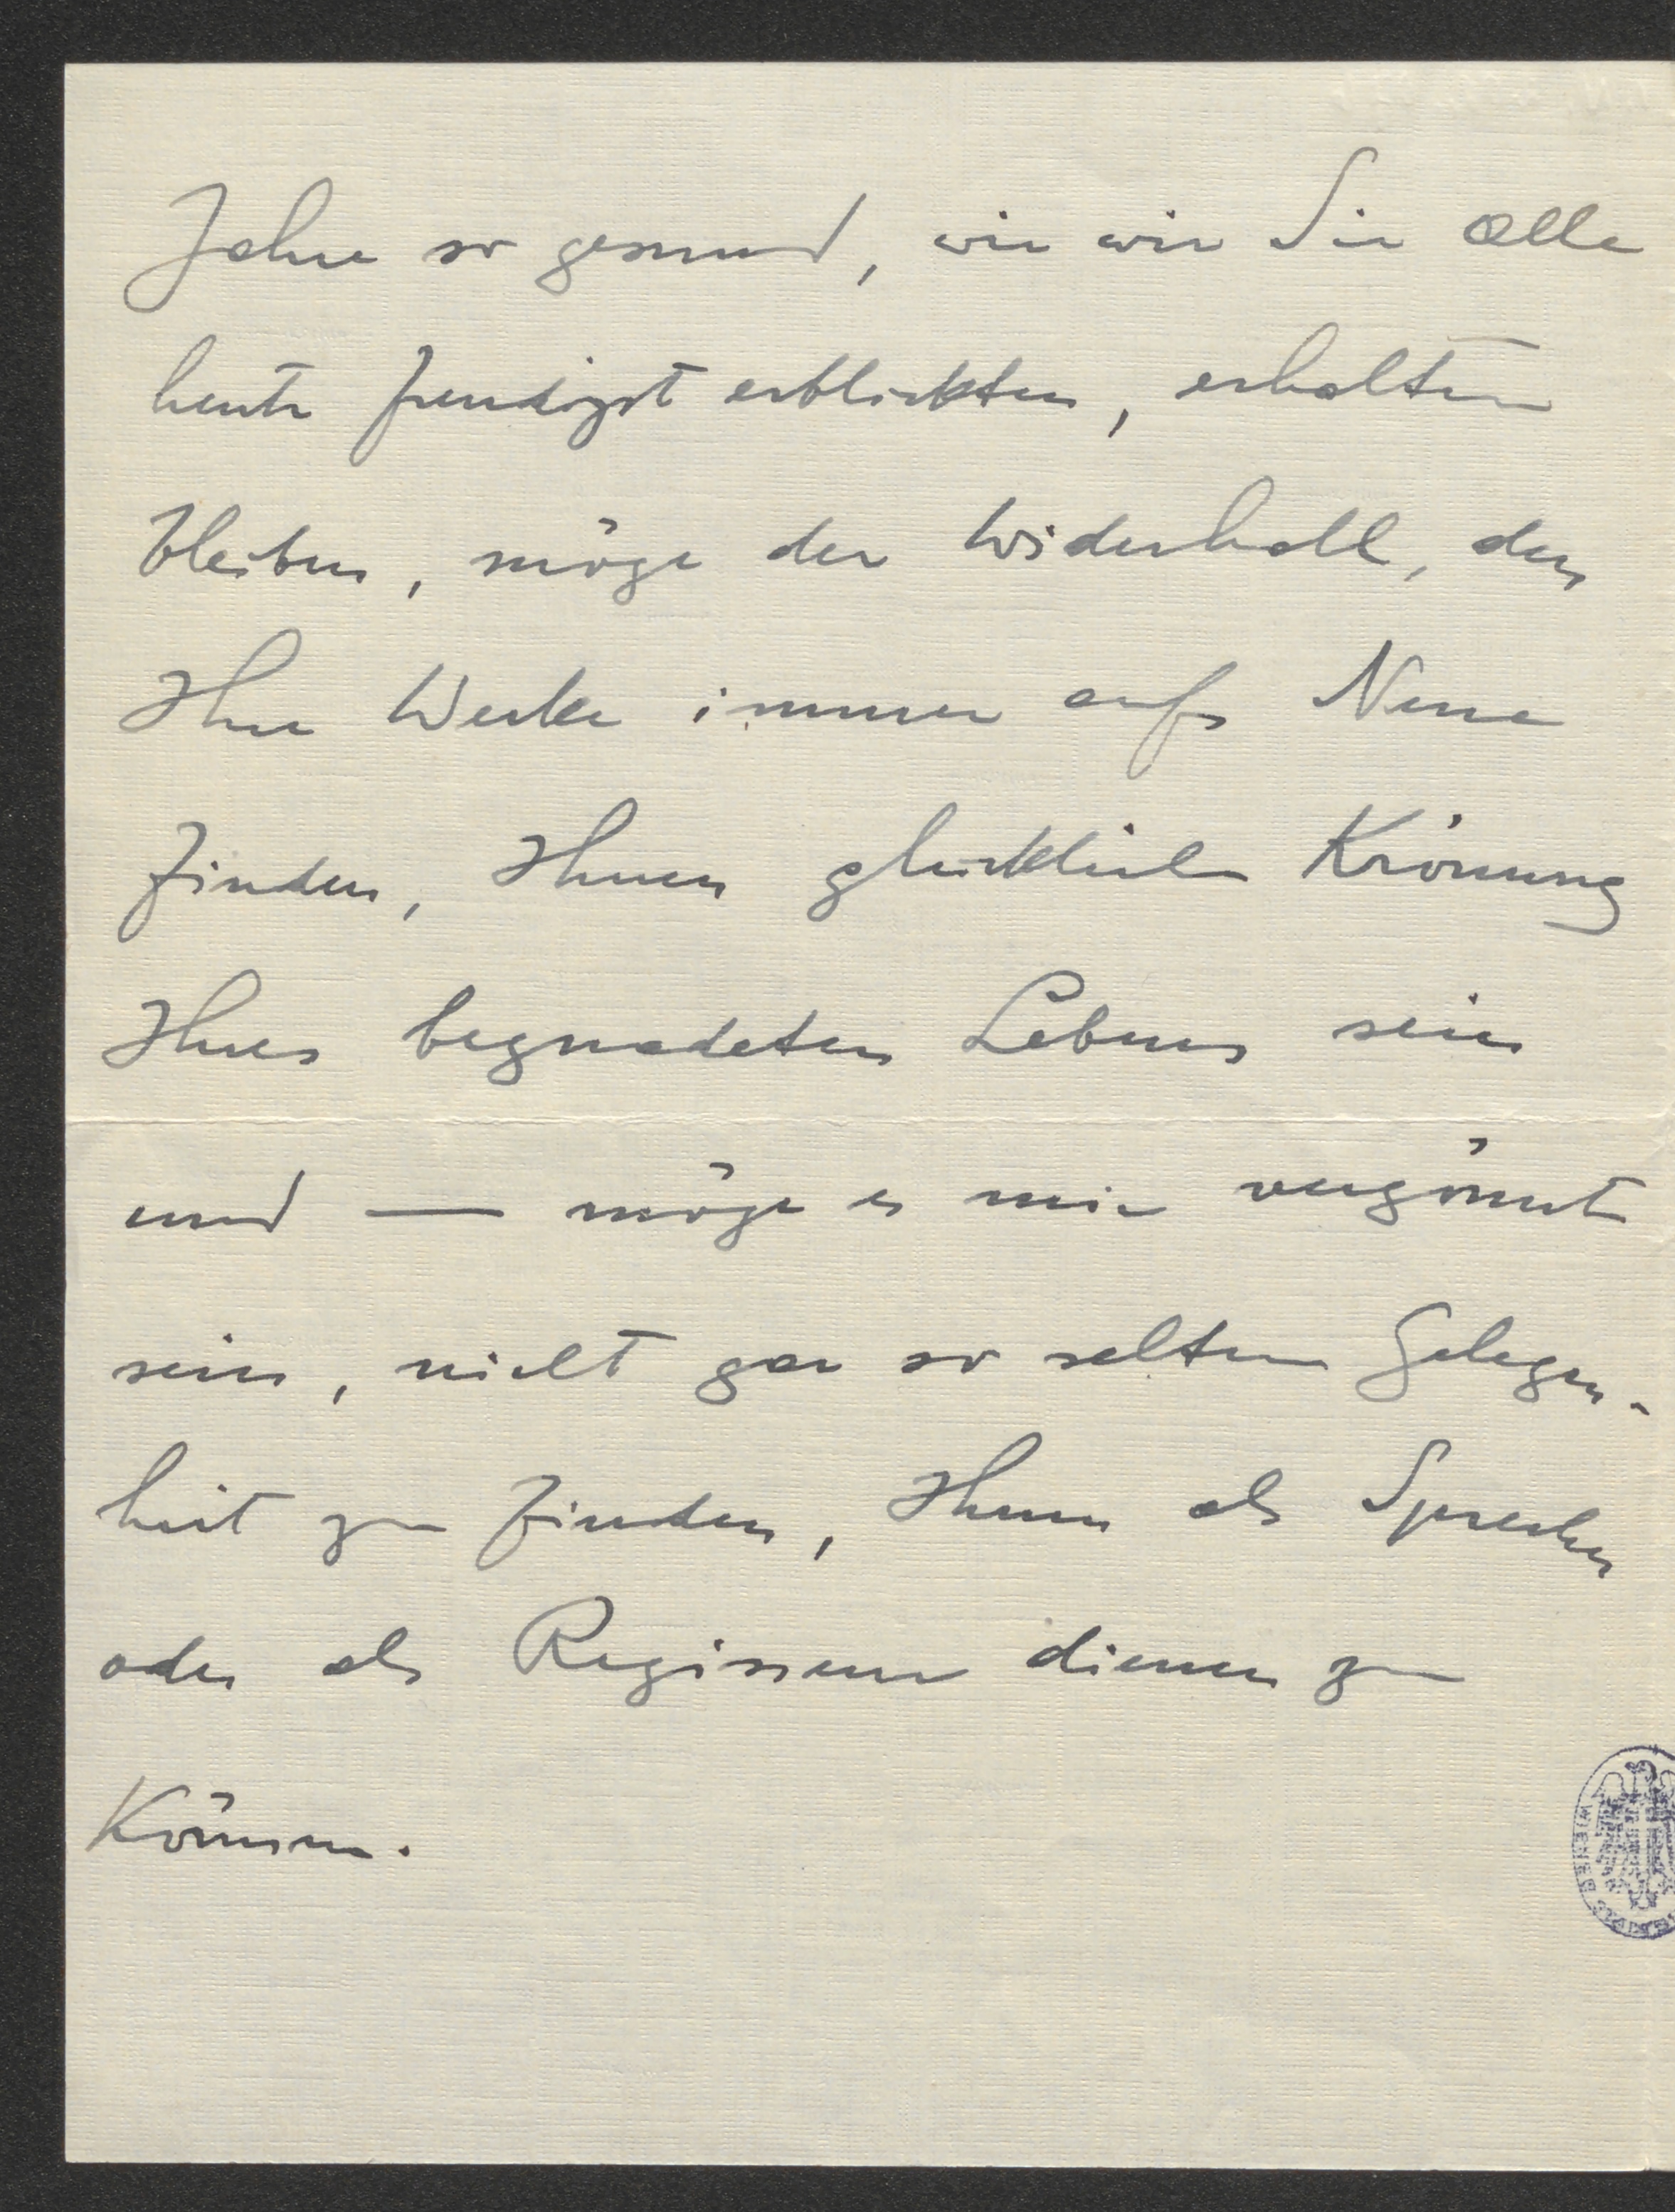 Jahre so gesund, wie wir Sie alle
heute freudigst erblickten, erhalten
bleiben, möge der Widerhall, den
Ihre Werke immer aufs Neue
finden, Ihnen glückliche Krönung
Ihres begnadeten Lebens sein
und — möge es mir vergönnt
sein, nicht gar so selten Gelegen-
heit zu finden, Ihnen als Sprecher
oder als Regisseur dienen zu
können.
WIENER